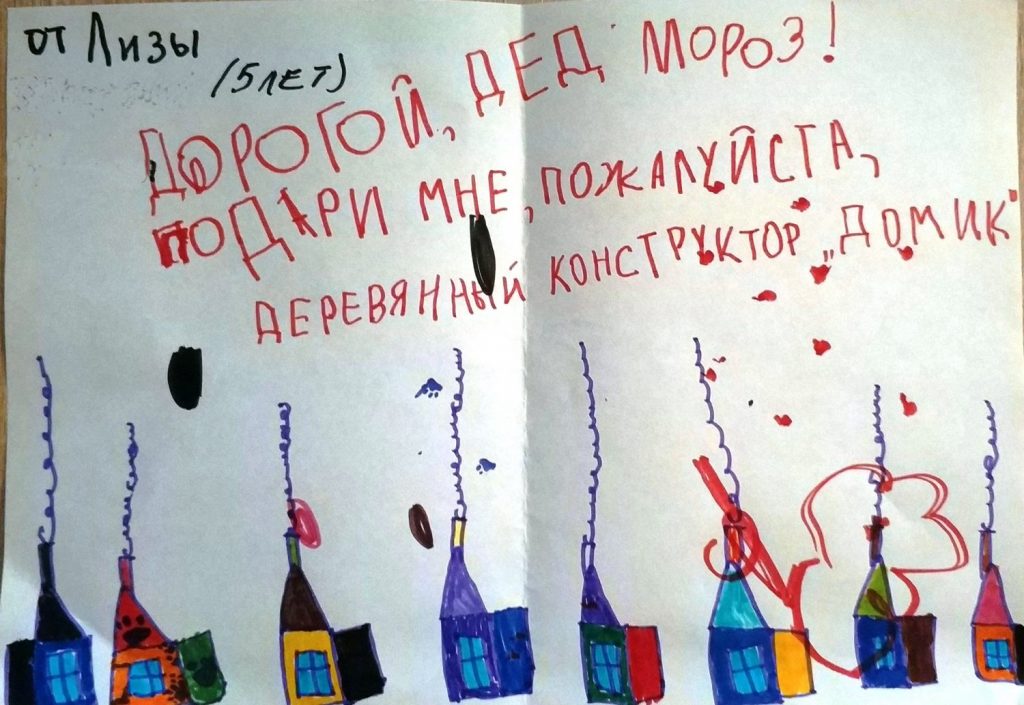 от Лизы
(5 ЛЕТ)
ДОРОГОЙ, ДЕД МОРОЗ!
ПОДАРИ МНЕ, ПОЖАЛУЙСТА,
ДЕРЕВЯННЫЙ КОНСТРУКТОР „ДОМИК"